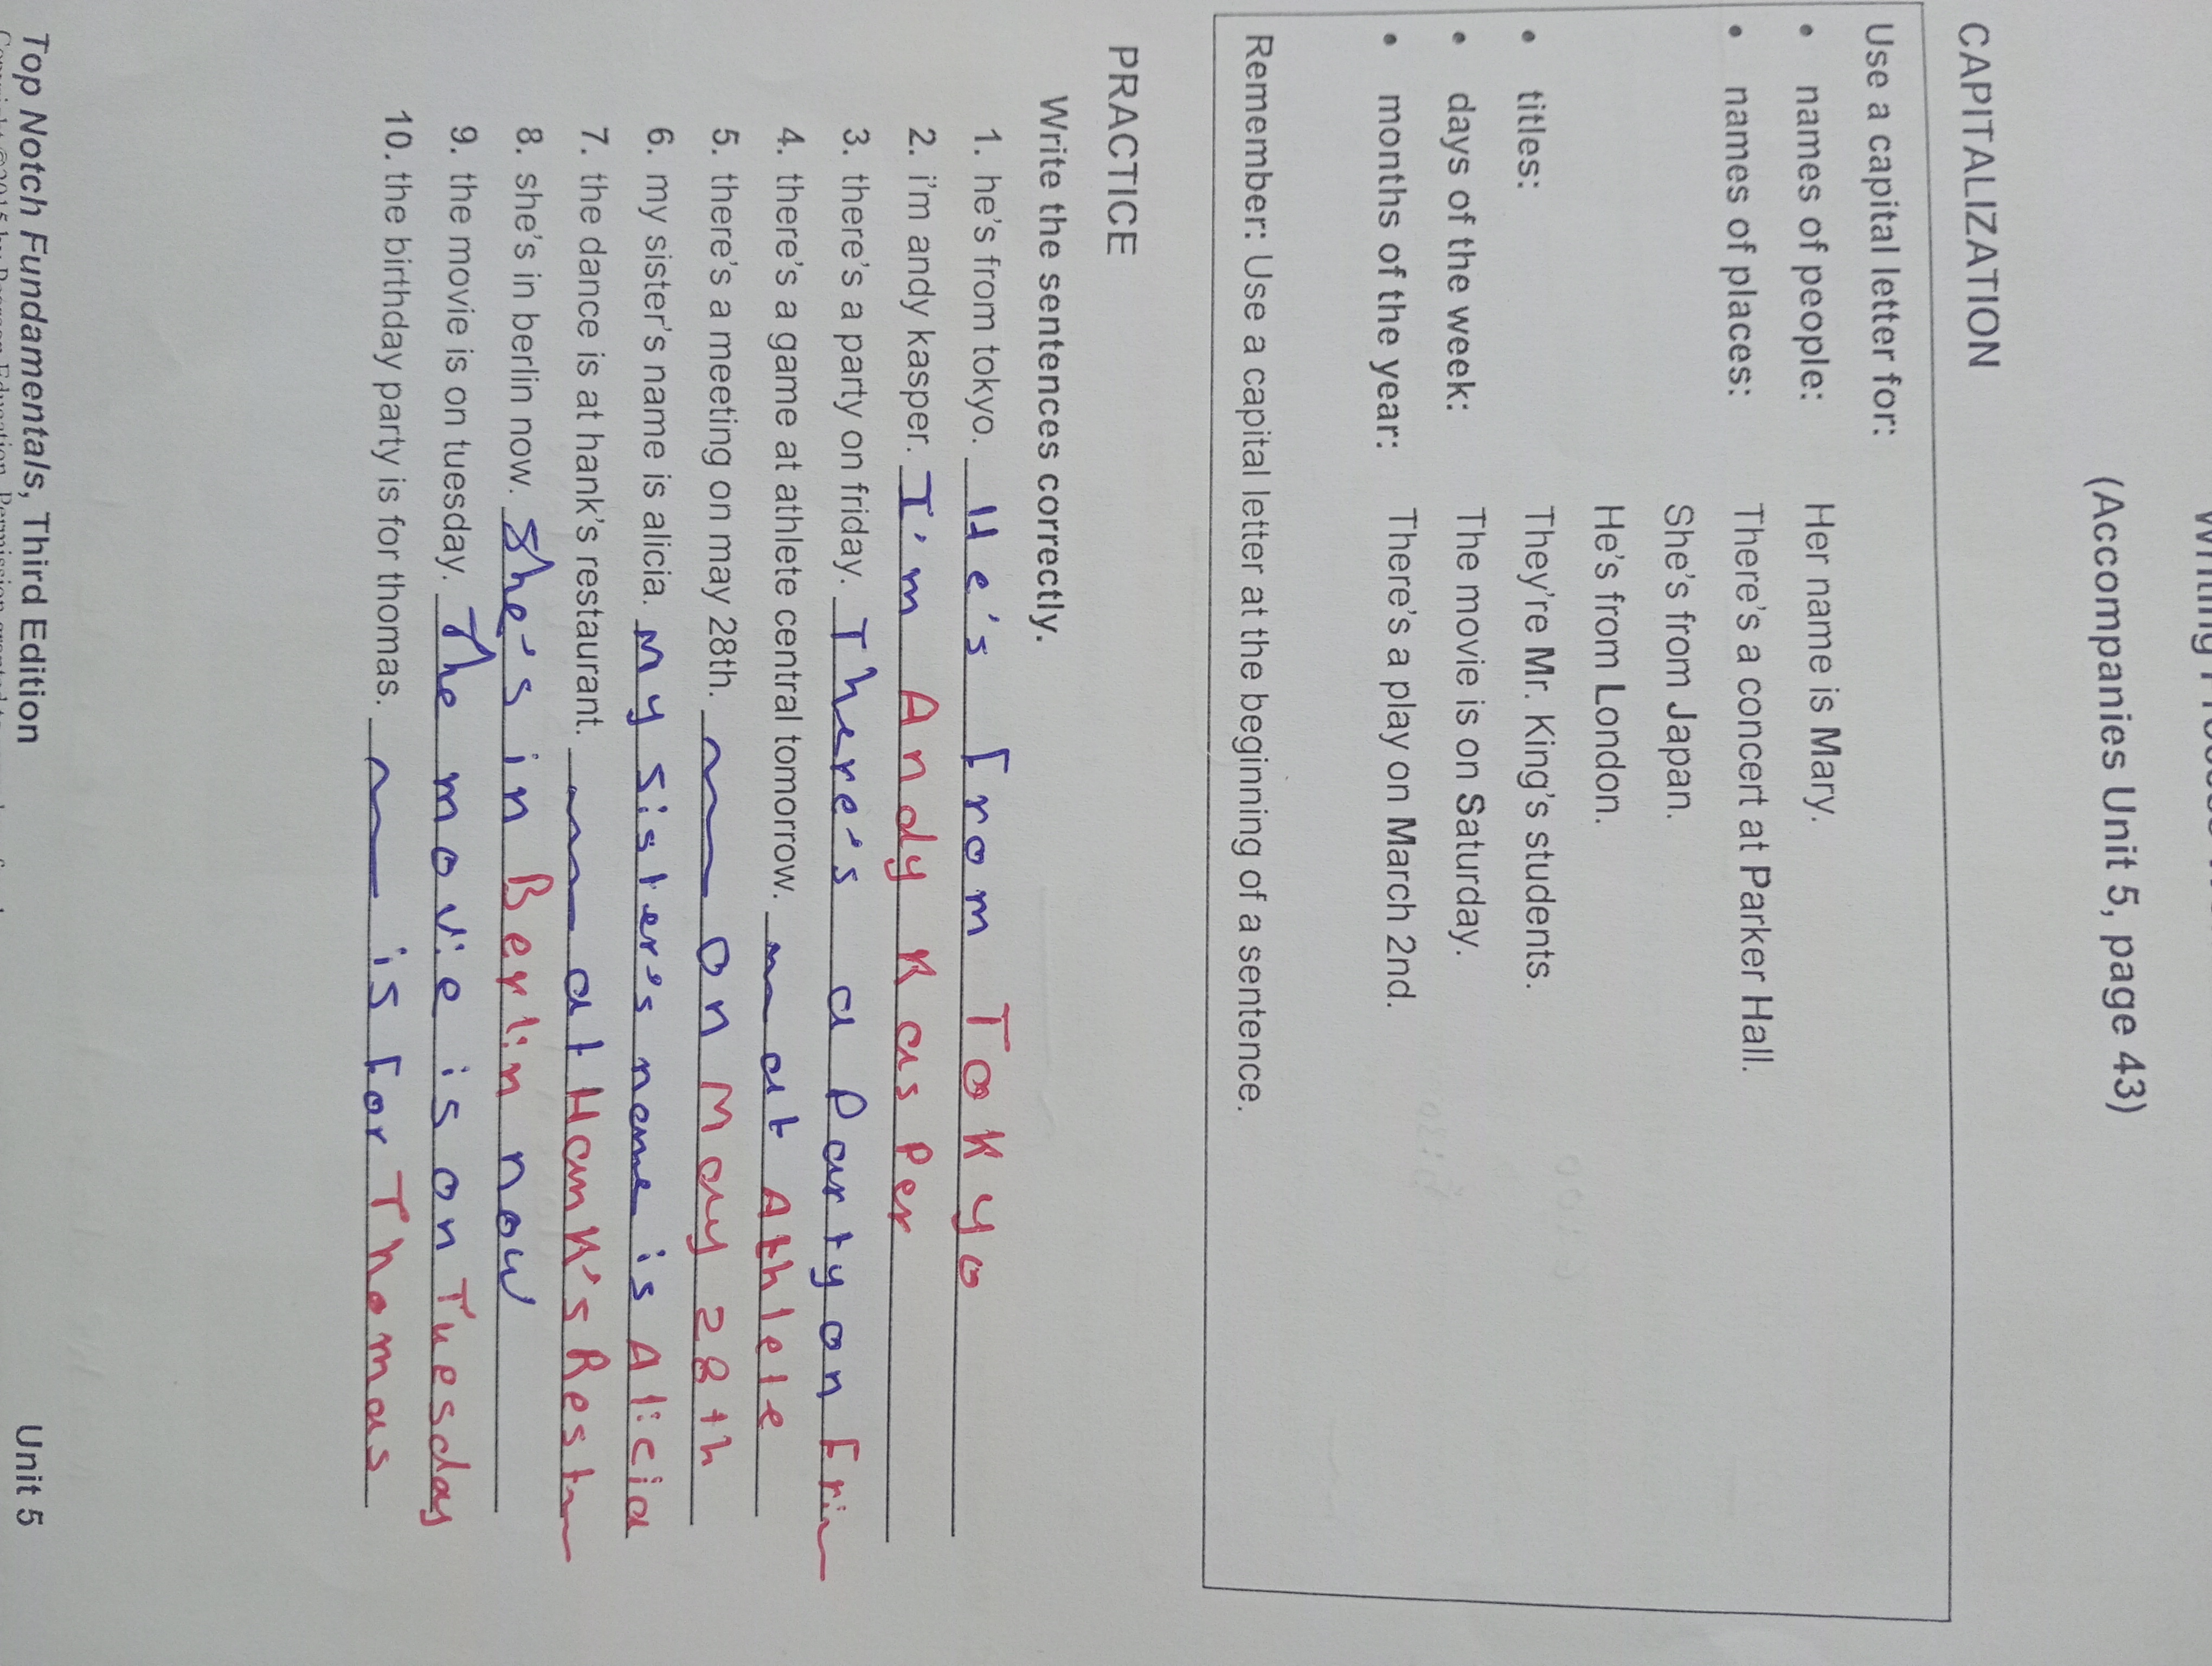 Writing Process
(Accompanies Unit 5, page 43)
CAPITALIZATION
Use a capital letter for:
• names of people: Her name is Mary.
• names of places: There's a concert at Parker Hall.
She's from Japan.
He's from London.
• titles: They're Mr. King's students.
• days of the week: The movie is on Saturday.
• months of the year: There's a play on March 2nd.
Remember: Use a capital letter at the beginning of a sentence.
PRACTICE
Write the sentences correctly.
1. he's from tokyo. He's from Tokyo
2. i'm andy kasper. I'm Andy Kasper
3. there's a party on friday. There's a Party on Fri
4. there's a game at athlete central tomorrow. at Athlete
5. there's a meeting on may 28th. on May 28th
6. my sister's name is alicia. My sister's name is Alicia
7. the dance is at hank's restaurant. at Hank's Rest
8. she's in berlin now. She's in Berlin now
9. the movie is on tuesday. The movie is on Tuesday
10. the birthday party is for thomas. is for Thomas
Top Notch Fundamentals, Third Edition Unit 5